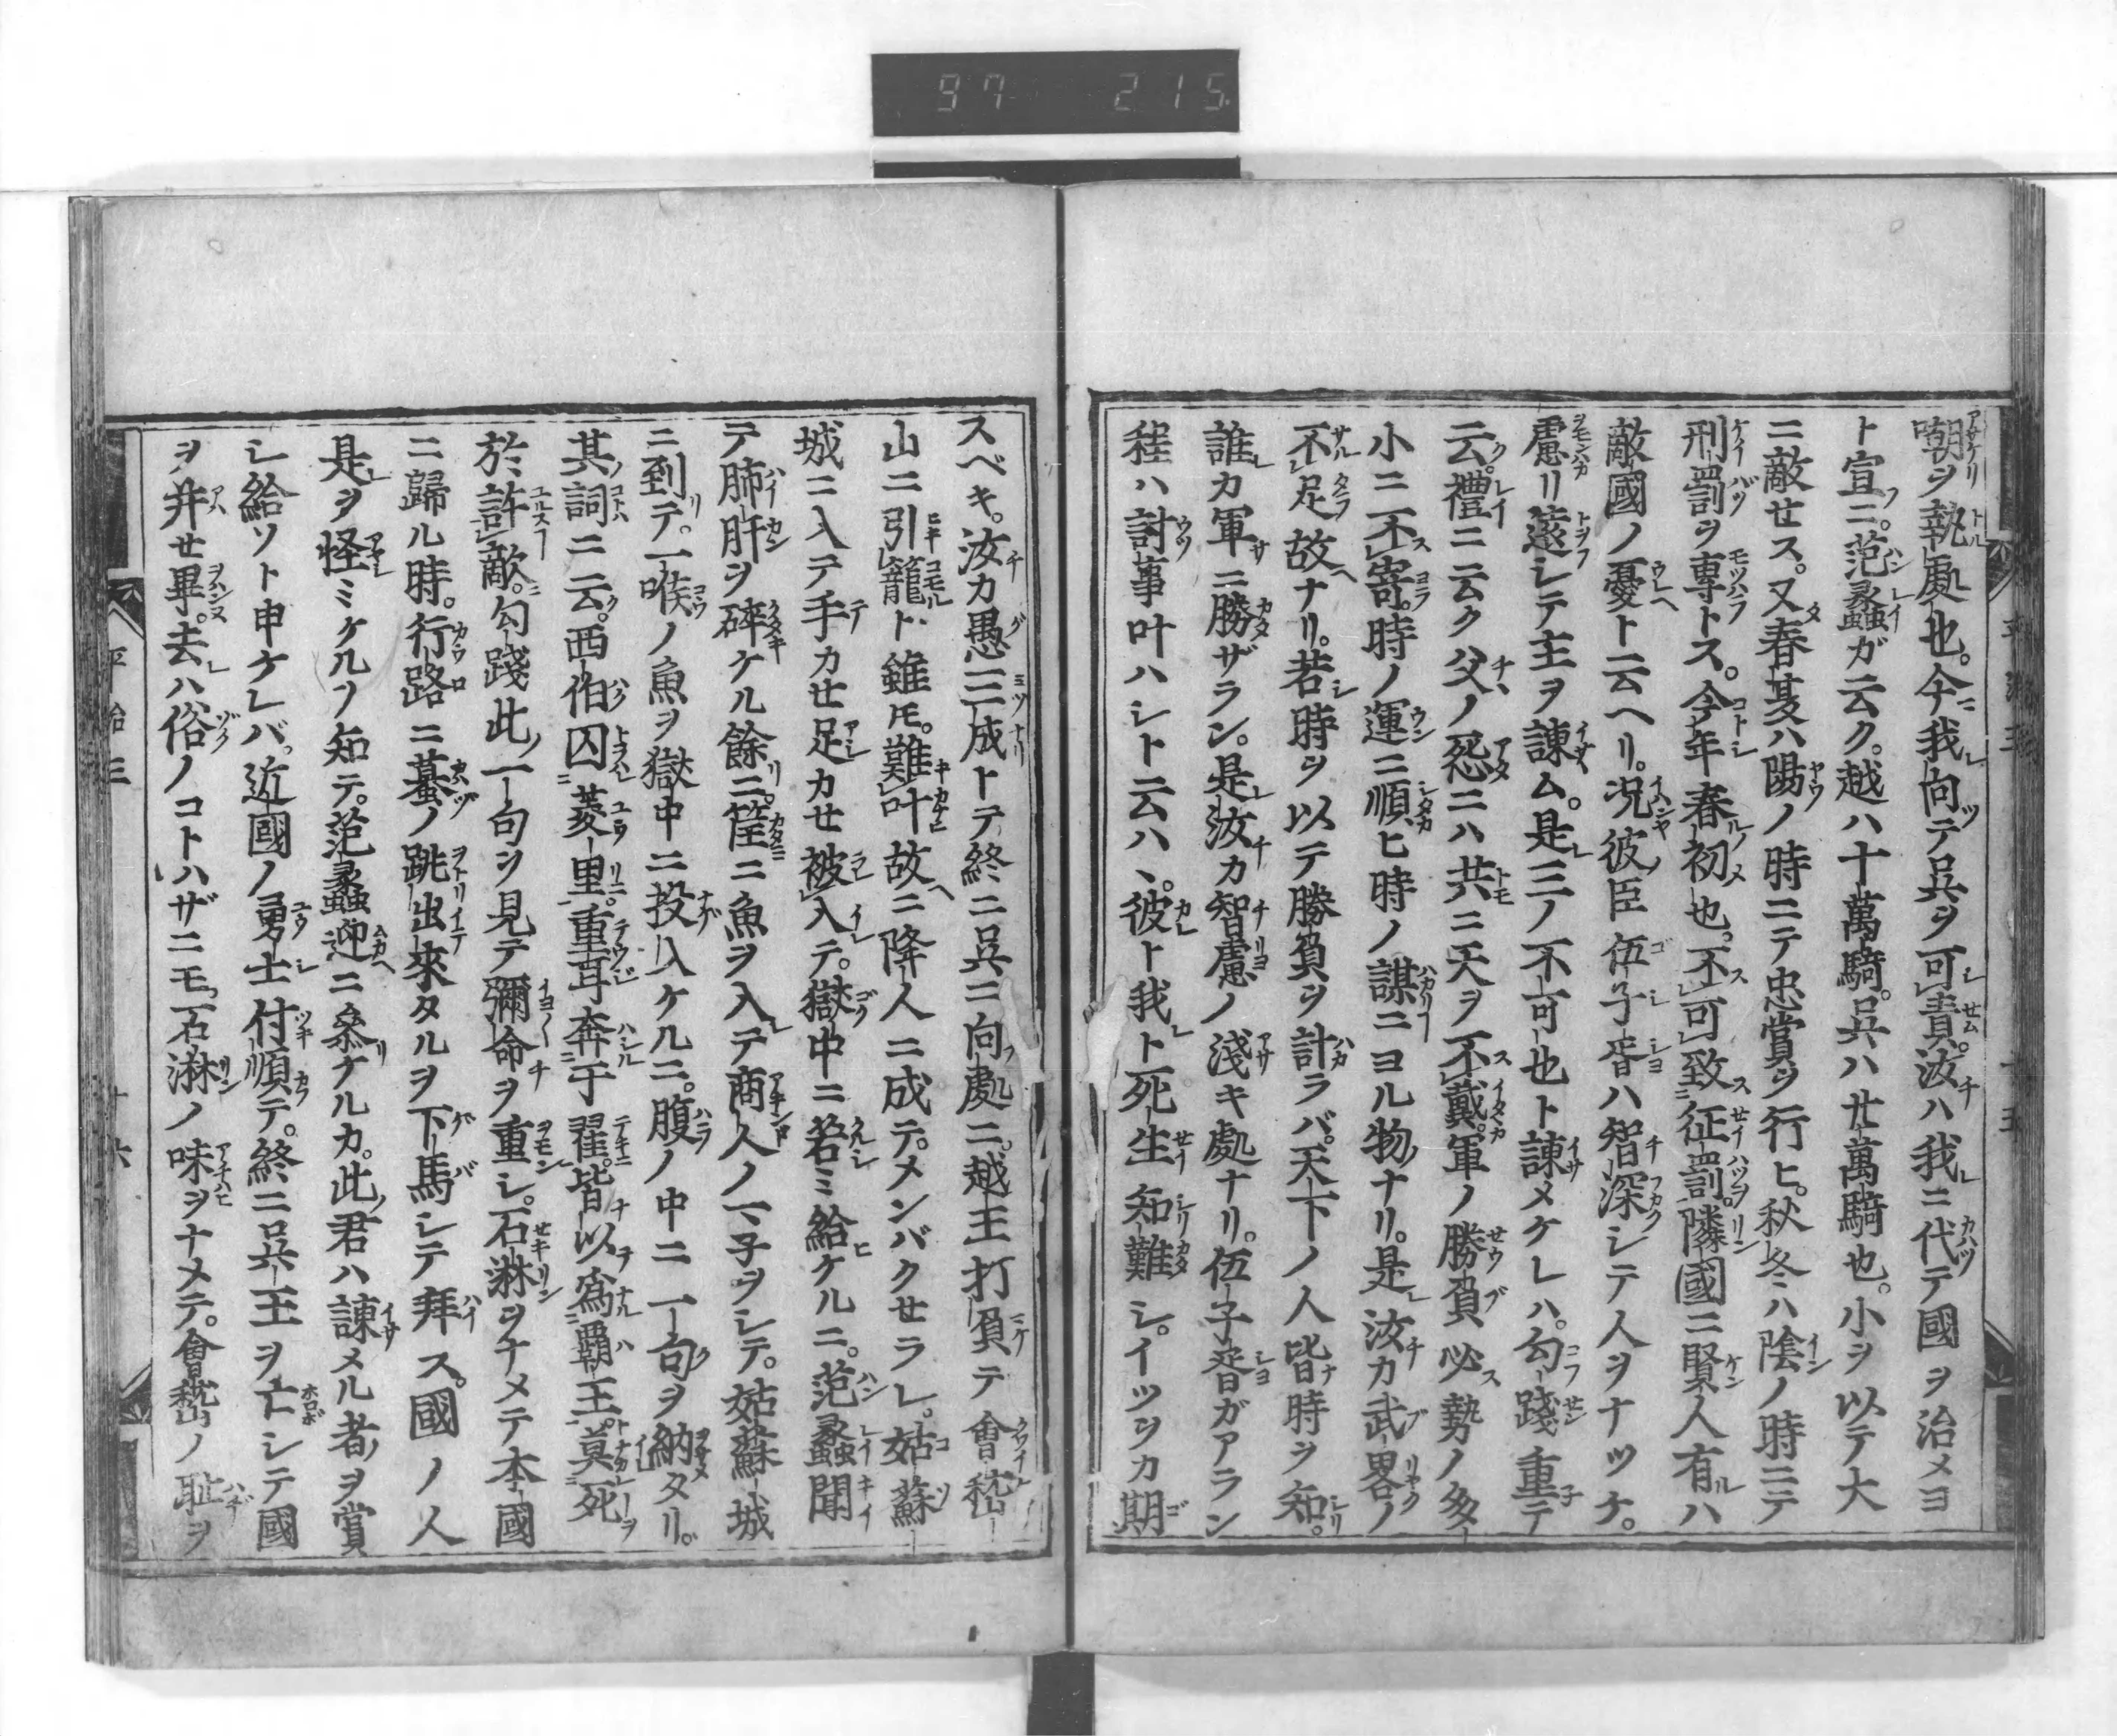 97 215
嘲ヲ執處也。今我向テ呉ヲ可責。汝ハ我ニ代テ國ヲ治メヨ
ト宣ニ。范蠡ガ云ク。越ハ十萬騎。呉ハ廿萬騎也。小ヲ以テ大
ニ敵セス。又春夏ハ陽ノ時ニテ忠賞ヲ行ヒ。秋冬ハ陰ノ時ニテ
刑罰ヲ專トス。今年春初也。不可致征罰。隣國ニ賢人有ハ
敵國ノ憂ト云ヘリ。况彼臣伍子胥ハ智深シテ人ヲナツケ。
慮リ遠シテ主ヲ諫ム。是三ノ不可也ト諫メケレハ。勾踐重テ
云。禮ニ云ク父ノ怨ニハ共ニ天ヲ不戴。軍ノ勝負必勢ノ多
小ニ不寄。時ノ運ニ順ヒ時ノ謀ニヨル物ナリ。是汝カ武畧ノ
不足故ナリ。若時ヲ以テ勝負ヲ計ラバ。天下ノ人皆時ヲ知。
誰カ軍ニ勝ザラン。是汝カ智慮ノ淺キ處ナリ。伍子胥ガアラン
程ハ討事叶ハシト云ハヽ。彼ト我ト死生知難シ。イツヲカ期
スベキ。汝カ愚三成トテ終ニ呉ニ向處ニ。越王打負テ會稽
山ニ引籠ト雖モ。難叶故ニ降人ニ成テ。メンバクセラレ。姑蘇
城ニ入テ手カセ足カセ被入テ。獄中ニ苦ミ給ケルニ。范蠡聞
テ肺肝ヲ碎ケル餘ニ。筐ニ魚ヲ入テ商人ノマ子ヲシテ。姑蘇城
ニ到テ。一喉ノ魚ヲ獄中ニ投入ケルニ。腹ノ中ニ一句ヲ納タリ。
其詞ニ云。西伯囚羑里。重耳奔于翟。皆以爲覇王。莫死
於許敵。勾踐此一句ヲ見テ彌命ヲ重シ。石淋ヲナメテ本國
ニ歸ル時。行路ニ蟇ノ跳出來タルヲ下馬シテ拜ス。國ノ人
是ヲ怪ミケルヲ知テ。范蠡迎ニ參ケルカ。此君ハ諫メル者ヲ賞
シ給ソト申ケレバ。近國ノ勇士付順テ。終ニ呉王ヲ亡シテ國
ヲ并セ畢。去ハ俗ノコトハザニモ。石淋ノ味ヲナメテ。會稽ノ耻ヲ
平治三
十六